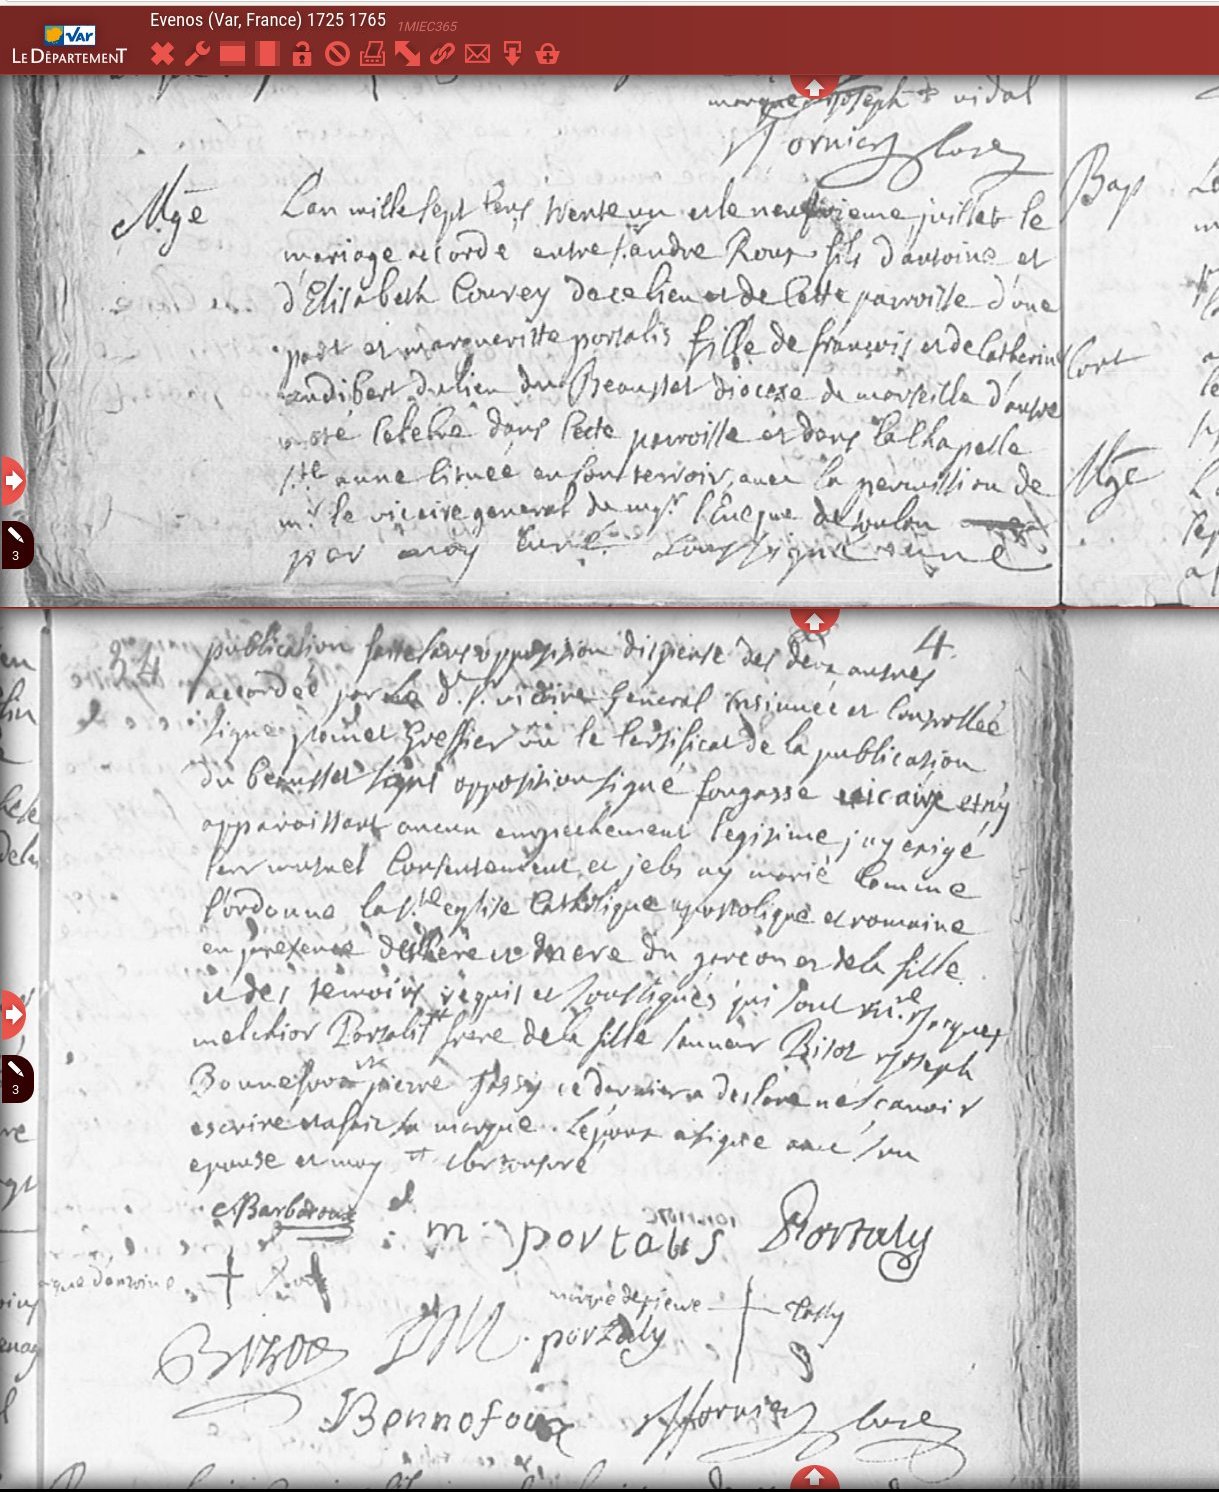 Evenos (Var, France) 1725 1765 1MIEC365
VAR
LE DÉPARTEMENT
marque Joseph + vidal
fornier Cure
Mge
L'an mille sept cens trente un et le neufvieme juillet le
mariage accordé entre sr andre Roux fils d'antoine et
d'Elisabeth Couvey de ce lieu et de Cette parroisse d'une
part et margueritte portalis fille de francois et de Catherine
audibert du lieu du Beausset diocese de marseille d'autre
a eté Celebré dans Cette parroisse et dans la Chapelle
ste anne Situeé en son terroir, avec la permission de
mr le vicaire general de mgr l'Eveque de toulon
par moy Curé soussigné une
Bap
Cort
Mge
3
34
4
publication faite sans opposition dispense des deux autres
accordée par le d. sr vicaire General insinuée et Controlleé
signé Greffier vu le Certificat de la publication
du beausset sans opposition signé fougasse vicaire et n'y
apparoissant aucun empechement legitime j'ay exigé
leur mutuel Consentement et je les ay marié Comme
l'ordonne la ste eglise Catholique apostolique et romaine
en presence des pere et mere du garcon et de la fille
et des temoins requis et soussignés qui sont Jacques
melchior Portalis frere de la fille Bisot Joseph
Bonnefoux pierre Tassy ce dernier a declaré ne scavoir
escrire et a fait sa marque. L'epoux a signé avec son
epouse et moy
Barbaroux
m portalis Portaly
marque d'antoine + Roux
marque de pierre + Tassy
portaly
Bizot
Bonnofoux fornier Cure
3